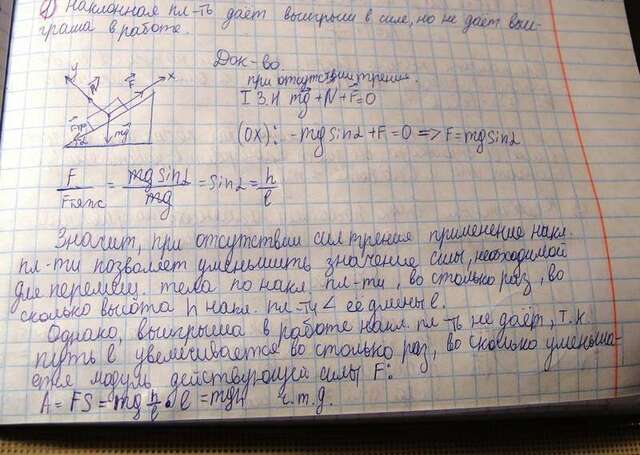 Наклонная пл-ть даёт выигрыш в силе, но не дает выи-
граша в работе.
Док-во.
при отсутствии трения.
I З.Н mg+N+F=0
y
N
F
x
Fтр
mg
α
(OX): -mgsinα+F=0 => F=mgsinα
F/Fтяж = mgsinα/mg = sinα = h/l
Значит, при отсутствии сил трения применение накл.
пл-ти позволяет уменьшить значение силы, необходимой
для перемещ. тела по накл. пл-ти, во столько раз, во
сколько высота h накл. пл-ти < ее длины l.
Однако, выигрыша в работе накл. пл-ть не даёт, т.к.
путь l увеличивается во столько раз, во сколько уменьша-
ется модуль действующей силы F:
A = FS = mg h/l · l = mgh ч.т.д.